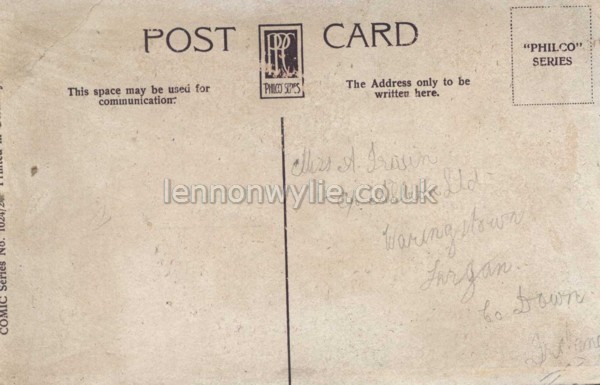 POST CARD
PHILCO SERIES
"PHILCO" SERIES
This space may be used for communication.
The Address only to be written here.
Miss A.
lennonwylie.co.uk
Ltd
Waringstown
Lurgan
Co Down
COMIC Series No. 1024/2 Printed in